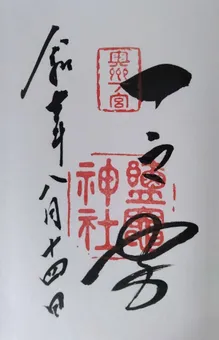 奥州一宮
一之宮
鹽竈
神社
令和七年八月十四日